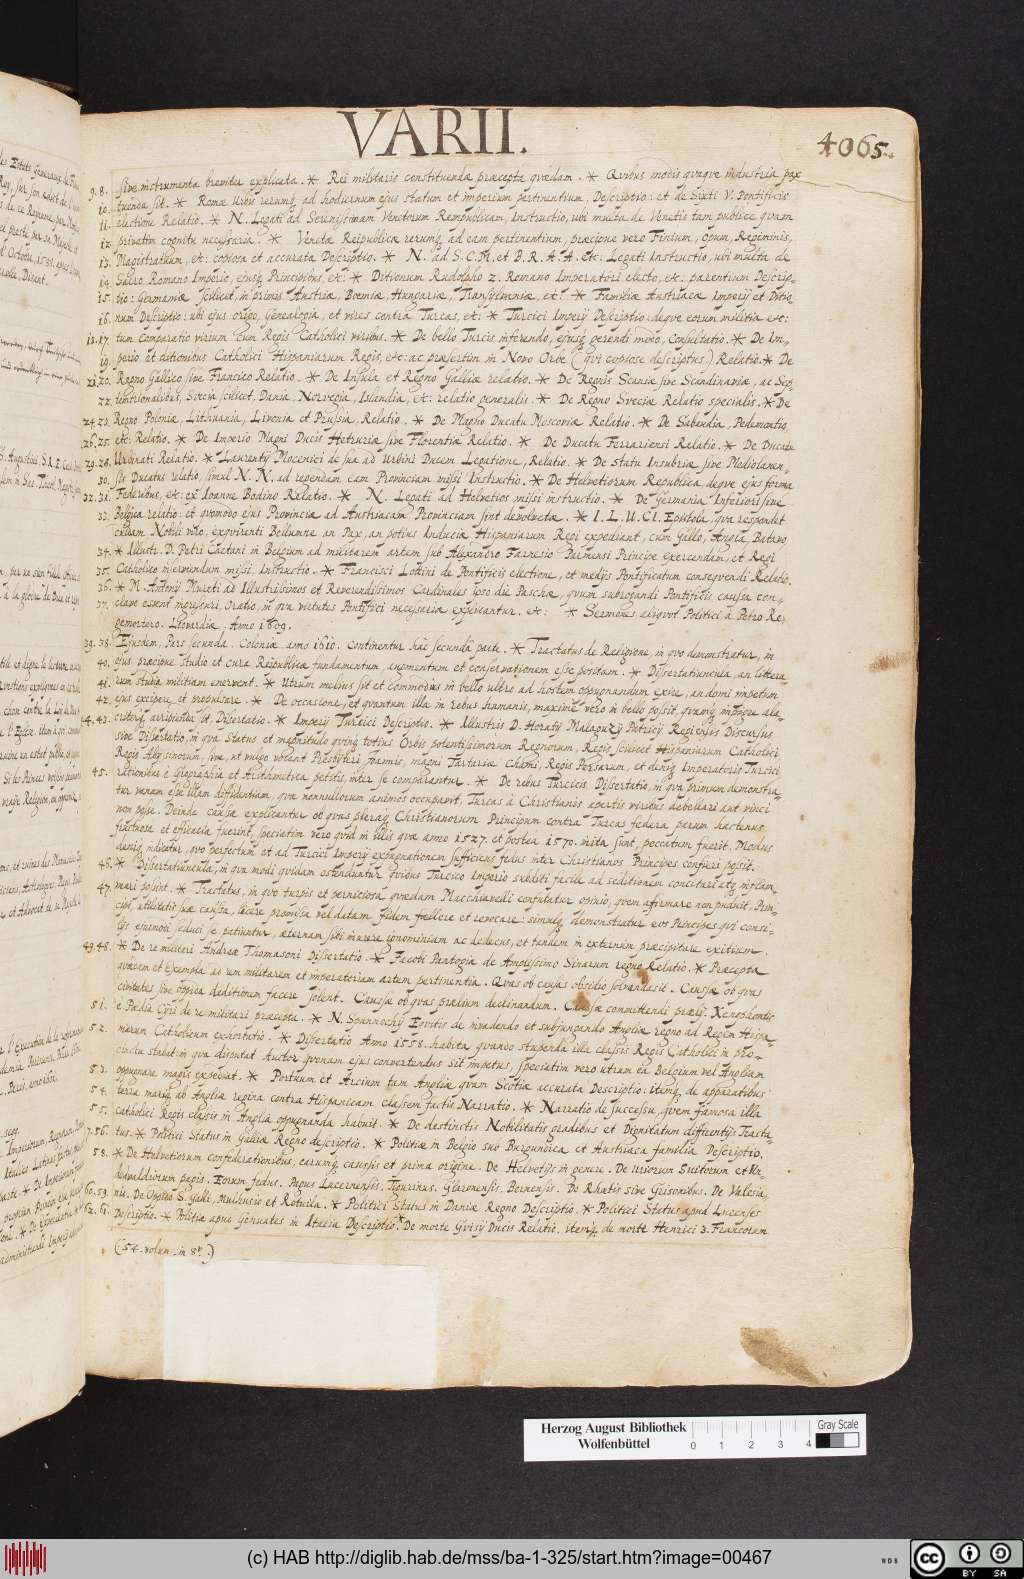 VARII.
4065.
9. 8. sive instrumenta breviter explicata. * Rei militaris constituendæ præcepta quædam. * Quibus modis quaque industria pax
10. tuenda sit. * Romæ Urbis rerumq. ad hodiernum ejus statum et imperium pertinentium, Descriptio: et de Sixti V. Pontificis
11. electione Relatio. * N. Legati ad Serenissimam Venetorum Rempublicam, Instructio, ubi multa de Venetis tam publice quam
12. privatim cognitu necessaria. * Venetæ Reipublicæ rerumq. ad eam pertinentium, præcipue vero Finium, Opum, Regiminis,
13. Magistratuum, etc: copiosa et accurata Descriptio. * N. ad S.C.M. et B.R.A.A. etc: Legati Instructio, ubi multa de
14. Sacro Romano Imperio, ejusq. Principibus, etc: * Ditionum Rudolpho 2. Romano Imperatori electo, etc. parentium Descrip-
15. tio: Germaniæ scilicet, in primis Austriæ, Boemiæ, Hungariæ, Transylvaniæ, etc: * Familiæ Austriacæ Imperij et Ditio
16. num Descriptio: ubi ejus origo, Genealogia, et vires contra Turcas, etc: * Turcici Imperij Descriptio: deque eorum militia etc:
18. 17. tum Comparatio virium cum Regis Catholici viribus. * De bello Turcis inferendo, ejusq. gerendi modo, Consultatio. * De Im-
19. perio et ditionibus Catholici Hispaniarum Regis, etc: ac præsertim in Novo Orbe (qui copiose descriptus.) Relatio. * De
21. 20. Regno Gallico sive Francico Relatio. * De Insula et Regno Galliæ relatio. * De Regnis Scaniæ sive Scandinaviæ, ac Sep
22. tentrionalibus, Svecia scilicet, Dania, Norvegia, Islandia, etc: relatio generalis. * De Regno Sveciæ Relatio specialis. * De
24. 23. Regno Poloniæ, Lithuania, Livonia et Prussia, Relatio. * De Magno Ducatu Moscoviæ Relatio. * De Sabaudia, Pedemontio,
26. 25. etc: Relatio. * De Imperio Magni Ducis Hetruriæ sive Florentiæ Relatio. * De Ducatu Ferrariensi Relatio. * De Ducatu
29. 28. Urbinati Relatio. * Laurentij Mocenici de sua ad Urbini Ducem Legatione, Relatio. * De Statu Insubriæ sive Mediolanen-
30. sis Ducatus relatio, simul N. N. ad regendam eam Provinciam missi Instructio. * De Helvetiorum Republica, deque ejus forma
32. 31. Federibus, etc. ex Ioanne Bodino Relatio. * N. Legati ad Helvetios missi instructio. * De Germania Inferiori sive
33. Belgica relatio: et quomodo ejus Provinciæ ad Austriacam Provinciam sint devolutæ. * I. L. U. C I. Epistola, qua respondet
cuidam Nobili viro, exquirenti Bellumne an Pax, an potius Induciæ Hispaniarum Regi expediant, cum Gallo, Angla, Batavo
34. * Illustr. D. Petri Caetani in Belgium ad militarem artem sub Alexandro Farnesio Parmensi Principe exercendam, et Regi
35. Catholico inserviendum missi, Instructio. * Francisci Lottini de Pontificis electione, et medijs Pontificatum consequendi Relatio.
36. * M. Antonij Mureti ad Illustrissimos et Reverendissimos Cardinales ipso die Paschæ, quum subrogandi Pontificis caussa con-
37. clave essent ingressuri, Oratio, in qua virtutes Pontifici necessariæ explicantur. etc: * Sermones aliquot Politici à Petro Re-
gemortero. Ursellis, Anno 1609.
39. 38. Ejusdem, Pars secunda. Coloniæ anno 1610. Continentur hac secunda parte. * Tractatus de Religione, in quo demonstratur, in
40. ejus præcipue studio et cura Reipublicæ fundamentum, augmentum et conservationem esse positum. * Dissertatiuncula, an littera-
41. rum studia militiam enervent. * Utrum melius sit et commodius in bello ultro ad hostem oppugnandum exire, an domi impetum
42. ejus excipere et propulsare. * De occasione, et quantum illa in rebus humanis, maxime vero in bello possit, quamq. impigre ala-
44. 43. criterq. arripienda sit, Dissertatio. * Imperij Turcici Descriptio. * Illustris D. Horatij Malaguzij Patricij Regiensis Discursus,
sive Dissertatio, in qua Status et magnitudo quinq. totius Orbis potentissimorum Regnorum, Regis scilicet Hispaniarum Catholici
Regis Abyssinorum, sive, ut vulgo vocant Presbyteri Joannis, magni Tartariæ Chami, Regis Persarum, et deniq. Imperatoris Turcici
45. rationibus è Geographia et Arithmetica petitis, inter se comparantur. * De rebus Turcicis Dissertatio, in qua primum demonstra-
tur vanam esse illam diffidentiam, qua nonnullorum animos occupavit, Turcas à Christianis apertis viribus debellari aut vinci
non posse. Deinde causæ explicantur ob quas pleraq. Christianorum Principum contra Turcas fœdera parum hactenus
fructuosa et efficacia fuerint, speciatim vero quid in illis quæ anno 1527. et postea 1570. inita sunt, peccatum fuerit. Modus
deniq. indicatur, quo perfectum et ad Turcici Imperij expugnationem sufficiens fœdus inter Christianos Principes confieri possit.
46. * Dissertatiuncula, in qua modi quidam ostenduntur quibus Turcico Imperio subditi facile ad seditionem concitari atq. inflam
47. mari possint. * Tractatus, in quo turpis et perniciosa quædam Macchiavelli confutatur opinio, quem affirmare non puduit, Prin-
cipi, utilitatis suæ caussa, licere promissa vel datam fidem fallere et revocare: simulq. demonstratur eos Principes qui consi-
lijs ejusmodi seduci se patiuntur, æternam sibi inurere ignominiam ac dedecus, et tandem in extremum præcipitare exitium.
49. 48. * De re militari Andreæ Thomasoni Dissertatio. * Jacobi Pantogia de Amplissimo Sinarum regno Relatio. * Præcepta
quædam et Exempla ad rem militarem et imperatoriam artem pertinentia. Quas ob causas obsidio solvenda sit. Caussæ ob quas
civitates sive oppida deditionem facere solent. Caussæ ob quas prælium declinandum. Caussæ committendi prælij. Xenophontis
51. è Pædia Cyri de re militari præcepta. * N. Spannochij Equitis de invadendo et subjungando Angliæ regno ad Regem Hispa-
52. niarum Catholicum exhortatio. * Dissertatio Anno 1558. habita quando stupenda illa classis Regis Catholici in pro-
cinctu stabat: in qua disputat Auctor quonam ejus convertendus sit impetus, speciatim vero utrum ea Belgium vel Angliam
53. oppugnare magis expediat. * Portuum et Arcium tam Angliæ quam Scotiæ accurata Descriptio: itemq. de apparatibus
54. terra mariq. ab Angliæ regina contra Hispanicam classem factis Narratio. * Narratio de successu, quem famosa illa
55. catholici Regis classis in Anglia oppugnanda habuit. * De destinctis Nobilitatis gradibus et Dignitatum differentijs Tracta-
57. 56. tus. * Politici Status in Galliæ Regno descriptio. * Politiæ in Belgio sub Burgundica et Austriaca familia Descriptio.
58. * De Helvetiorum confederationibus, earumq. caussis et prima origine. De Helvetijs in genere. De Uriorum Suitorum et Un
dervaldiorum pagis. Eorum fedus. Pagus Lucernensis. Tigurinus. Glaronensis. Bernensis. De Rhætis sive Grisonibus. De Valesia
60. 59. nis. De Oppido S. Galli, Mulhusio et Rotvila. * Politici Status in Daniæ Regno Descriptio. * Politici Status apud Lucenses
62. 61. Descriptio. * Politiæ apud Genuates in Italia Descriptio. * De morte Gvisij Ducis Relatio, itemq. de morte Henrici 3. Francorum
(54. volum. in 8º.)
Herzog August Bibliothek
Wolfenbüttel
0 1 2 3 4
Gray Scale
(c) HAB http://diglib.hab.de/mss/ba-1-325/start.htm?image=00467
WDB
CC BY SA